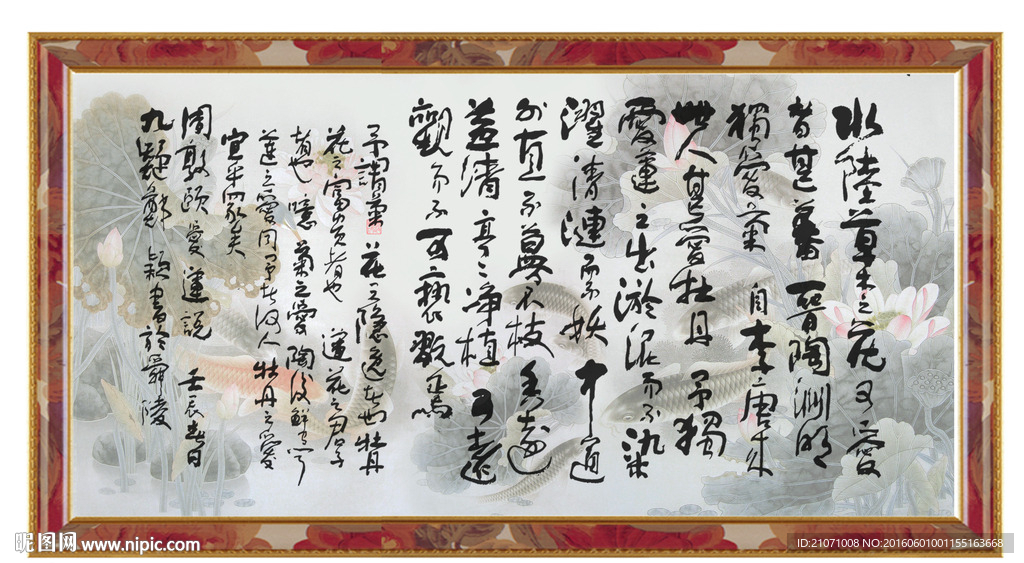 水陸草木之花可愛
者甚蕃晉陶淵明
獨愛菊自李唐來
世人甚愛牡丹予獨
愛蓮之出淤泥而不染
濯清漣而不妖中通
外直不蔓不枝香遠
益清亭亭淨植可遠
觀而不可褻翫焉
予謂菊花之隱逸者也牡丹
花之富貴者也蓮花之君子
者也噫菊之愛陶後鮮有聞
蓮之愛同予者何人牡丹之愛
宜乎眾矣
周敦頤愛蓮說壬辰春日
九嶷書於舜陵
昵图网 www.nipic.com
ID:21071008 NO:20160601001155163668